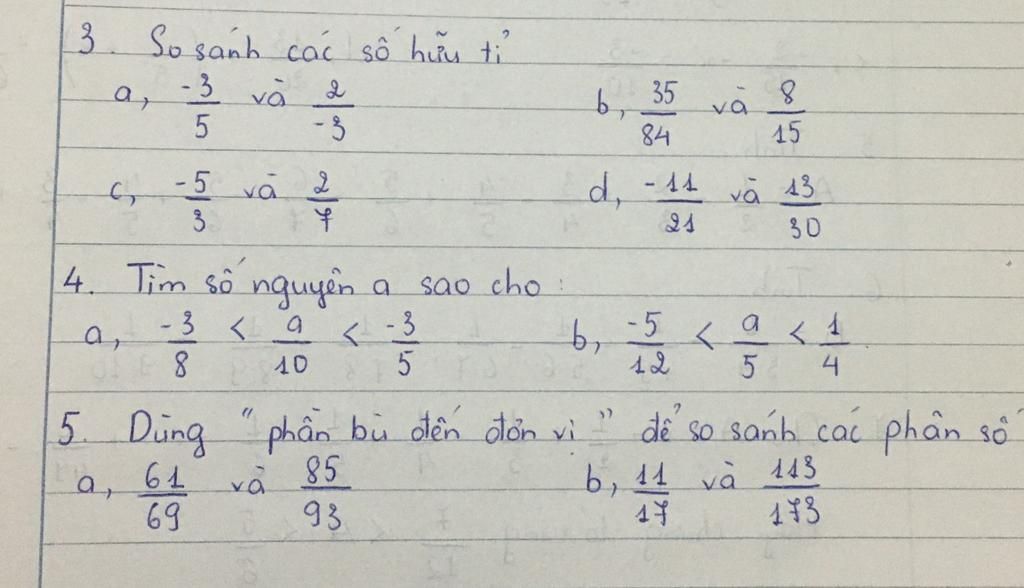 3. So sánh các số hữu tỉ
a, -3/5 và 2/-3 b, 35/84 và 8/15
c, -5/3 và 2/7 d, -11/21 và 13/30
4. Tìm số nguyên a sao cho :
a, -3/8 < a/10 < -3/5 b, -5/12 < a/5 < 1/4
5. Dùng "phần bù đến đơn vị" để so sánh các phân số
a, 61/69 và 85/93 b, 11/17 và 113/173